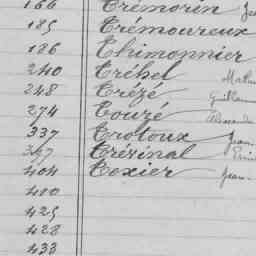 166 Trémorin
185 Trémoureux
186 Thimonnier
240 Tréhel
248 Trézé Guillaume
274 Touzé
337 Trotoux Jean
397 Trésinal
404 Texier Jean
410
425
428
433